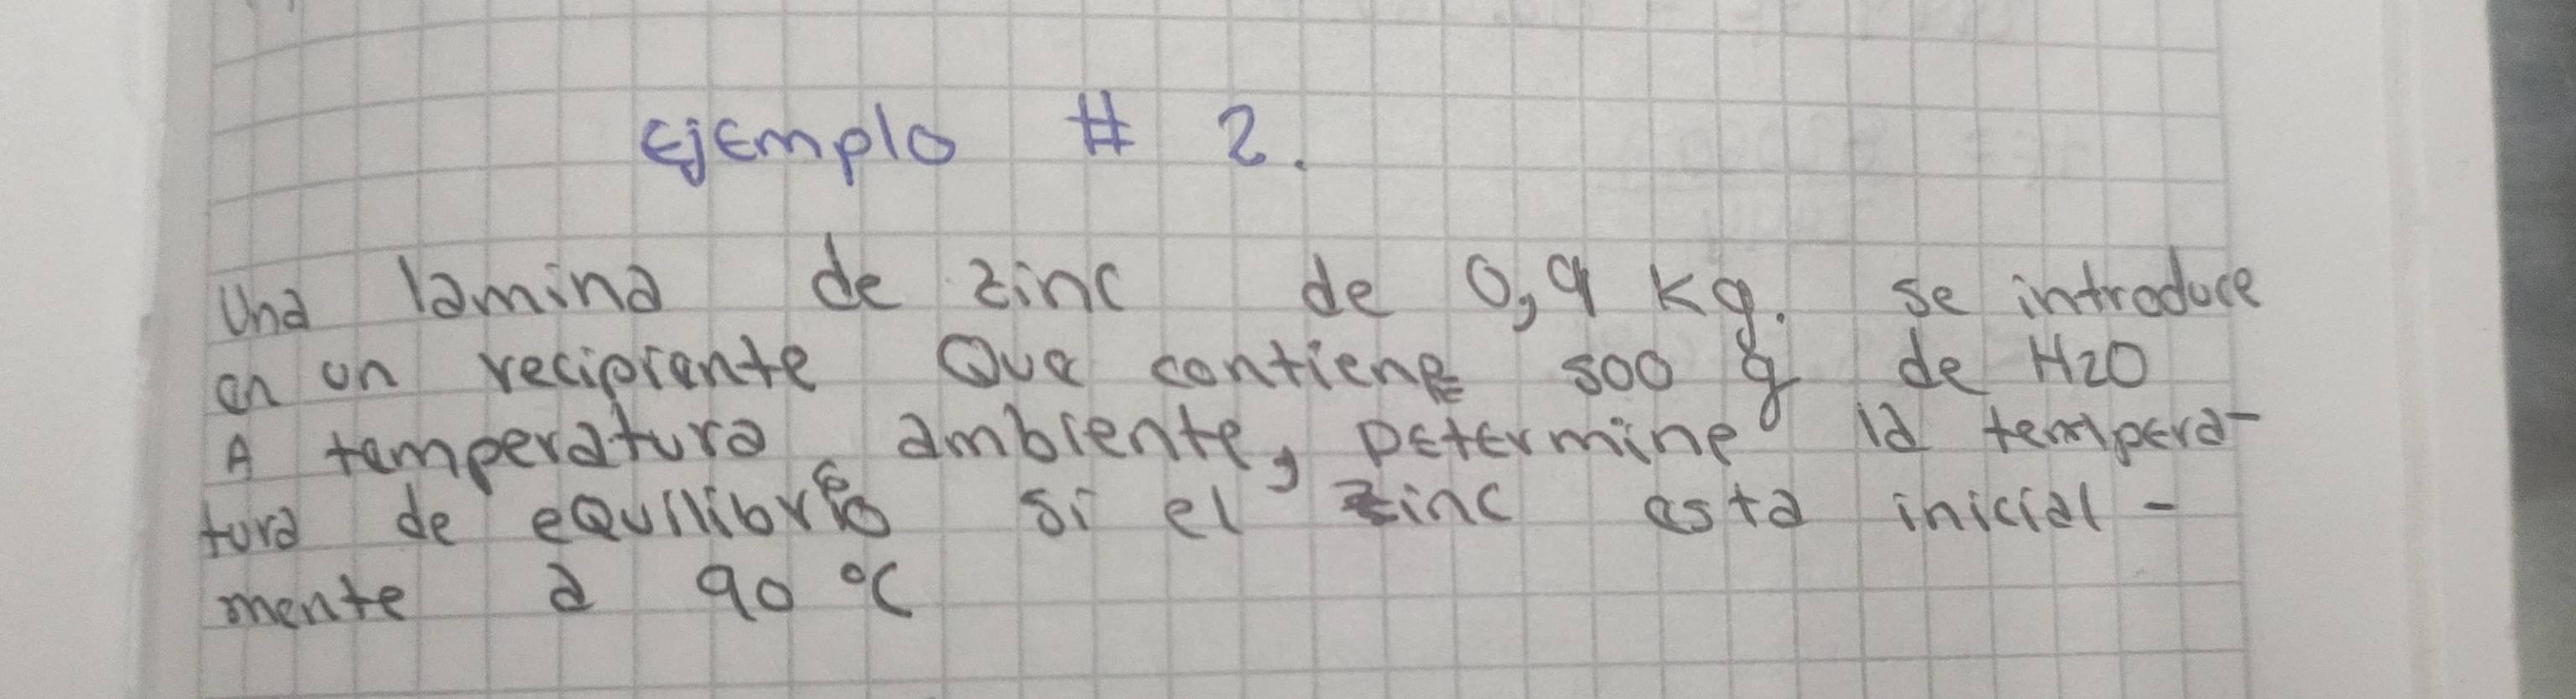 Ejemplo # 2.
Una lamina de zinc de 0,9 kg. se introduce
en un recipiente Que contiene 500 g de H2O
A temperatura ambiente, Determine la tempera-
tura de equilibrio si el zinc esta inicial-
mente a 90 °C